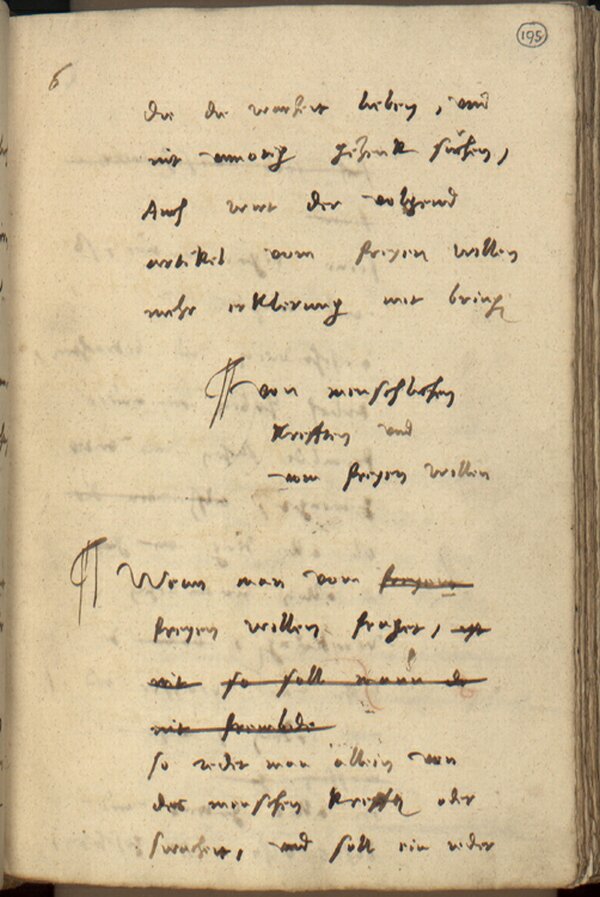 195
6
die die warheit lieben, und
nit unnotig gezenk suchen,
Auch wirt der volgend
artikel vom freyen willen
mehr erklerung mit bring
von menschlichen
krefften und
vom freyen willen
Wenn man vom freyen
freyen willen fraget, ist
mit so soll mann die
mit frembde
so redet man allein von
des menschen krefft oder
swacheit, und soll ein jeder